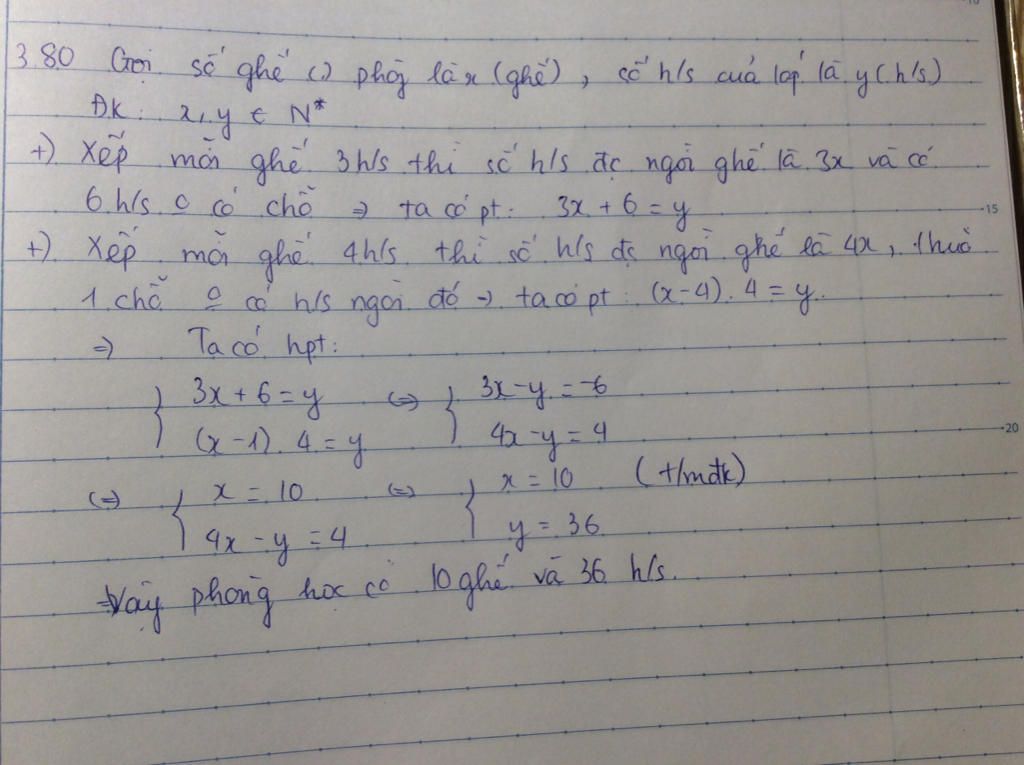 380 Gọi số ghế () phòg là x (ghế), số h/s của lớp là y (h/s)
ĐK: x, y ∈ N*
+) Xếp mỗi ghế 3 h/s thì số h/s đc ngồi ghế là 3x và có
6 h/s có chỗ ⇒ ta có pt: 3x + 6 = y
15
+) Xếp mỗi ghế 4 h/s thì số h/s đc ngồi ghế là 4x,
1 chỗ có h/s ngồi đó → ta có pt: (x-4).4 = y.
⇒ Ta có hpt:
{ 3x + 6 = y ⇔ { 3x - y = -6
(x-1).4 = y 4x - y = 4
20
⇔ { x = 10 ⇔ { x = 10 (t/mđk)
4x - y = 4 y = 36
⇒ Vậy phòng học có 10 ghế và 36 h/s.